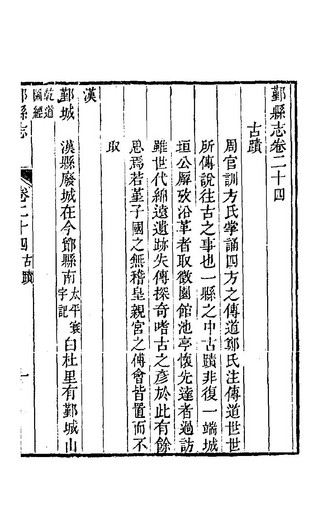 鄞縣志卷二十四
古蹟
周官訓方氏掌誦四方之傳道鄭氏注傳道世世
所傳說往古之事也一縣之中古蹟非復一端城
垣公廨攷沿革者取徵園館池亭懷先達者過訪
雖世代綿遠遺跡失傳探奇嗜古之彥於此有餘
思焉若菫子國之無稽皇親宮之傅會皆置而不
取
漢
鄞城 漢縣廢城在今鄮縣南太平寰宇記白杜里有鄞城山
乾道圖經
鄞縣志 卷二十四 古蹟 一